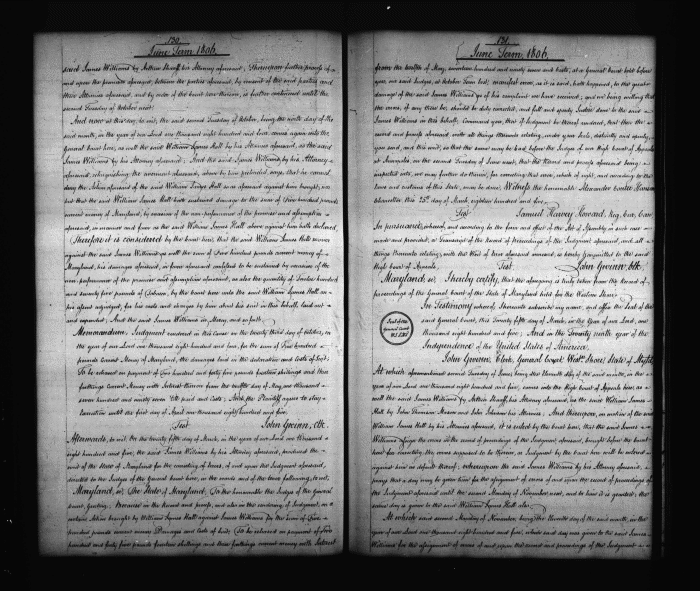 130
June Term 1806.
said James Williams by Arthur Shaaff his Attorney aforesaid; Whereupon further process of
and upon the premises aforesaid, between the parties aforesaid, by consent of the said parties and
their Attornies aforesaid, and by order of the Court here thereon, is further continued until the
second Tuesday of October next.
And now at this day, to wit, the said second Tuesday of October, being the ninth day of the
said month, in the year of our Lord one thousand eight hundred and four, comes again into the
General Court here, as well the said William James Hall by his Attorney aforesaid, as the said
James Williams by his Attorney aforesaid; And the said James Williams by his Attorney
aforesaid, relinquishing the averment aforesaid, above by him pleaded, says that he cannot
deny the Action aforesaid of the said William James Hall as aforesaid against him brought,
but that the said William James Hall hath sustained damage to the sum of Five hundred pounds
current money of Maryland, by occasion of the non-performance of the promise and assumption
aforesaid, in manner and form as the said William James Hall above against him hath declared,
Therefore it is considered by the Court here, that the said William James Hall recover
against the said James Williams as well the sum of Five hundred pounds current money of
Maryland, his damages aforesaid, in form aforesaid confessed to be sustained by occasion of the
non-performance of the promise and assumption aforesaid, as also the quantity of Twelve hundred
and seventy five pounds of Tobacco, by the Court here unto the said William James Hall on
his assent adjudged, for his costs and charges by him about his suit in this behalf laid out
and expended; And the said James Williams in Mercy, and so forth.
Memorandum, Judgment rendered in this Cause on the twenty third day of October, in
the year of our Lord one thousand eight hundred and four, for the sum of Five hundred
pounds current Money of Maryland, the damages laid in the declaration and costs of suit;
To be released on payment of Two hundred and forty five pounds fourteen shillings and three
farthings current Money with Interest thereon from the twelfth day of May, one thousand
seven hundred and ninety seven till paid and costs; And the Plaintiff agrees to stay
Execution until the first day of April one thousand eight hundred and five.
Test John Gwinn, Clk.
Afterwards, to wit, on the twenty fifth day of March, in the year of our Lord one thousand
eight hundred and five, the said James Williams by his Attorney aforesaid, produced the
writ of the State of Maryland for the correcting of Errors, of and upon the Judgment aforesaid,
directed to the Judges of the General Court here, in the words and of the tenor following, to wit,
Maryland, ss. The State of Maryland, To the honourable the Judges of the General
Court, Greeting; Because in the Record and process, and also in the rendering of Judgment, in a
certain Action brought by William James Hall against James Williams for the sum of Five
hundred pounds current money Damages and costs of suit; To be released on payment of Two
hundred and forty five pounds fourteen shillings and three farthings current money with Interest
131
June Term 1806.
from the twelfth of May, seventeen hundred and ninety seven and costs, at a General Court held before
you, our said Judges, at October Term last; manifest error, as it is said, hath happened, to the great
damage of the said James Williams as of his complaint we have received; and we being willing that
the error, if any there be, should be duly corrected, and full and speedy Justice done to the said
James Williams in this behalf; Command you, that if Judgment be thereof rendered, that then the
record and process aforesaid with all things thereunto relating, under your seals, distinctly and openly,
you send, and this writ, so that the same may be had before the Judges of our High Court of Appeals
at Annapolis, on the second Tuesday of June next, that the Record and process aforesaid being
inspected into, we may further do therein, for correcting that error, which of right, and according to the
laws and customs of this State, may be done. Witness the honourable Alexander Contee Hanson
Chancellor this 25th day of March, eighteen hundred and five.
Test Samuel Harvey Howard, Reg. Cur. Can.
In pursuance whereof, and according to the form and effect of the Act of Assembly in such case
made and provided, a Transcript of the Record of Proceedings of the Judgment aforesaid, and all
things thereunto relating, with the Writ of Error aforesaid, is hereby transmitted to the said
High Court of Appeals. Test John Gwinn, Clk.
Maryland, ss. I hereby certify, that the aforegoing is truly taken from the Record of
proceedings of the General Court of the State of Maryland held for the Western Shore.
In Testimony whereof, I hereunto subscribe my name, and affix the Seal of the
said General Court, this Twenty fifth day of March, in the Year of our Lord, one
thousand eight hundred and five; And in the Twenty ninth year of the
Independence of the United States of America.
Seal of the
General Court
W.S.E.S.M
John Gwinn, Clerk, General Court West.n Shore, State of Mary.d
At which aforementioned second Tuesday of June, being the eleventh day of the said month, in the
year of our Lord one thousand eight hundred and five, comes into the High Court of Appeals here, as
well the said James Williams by Arthur Shaaff his Attorney aforesaid, as the said William James
Hall by John Thomson Mason and John Johnson his Attornies; And thereupon, on motion of the said
William James Hall by his Attornies aforesaid, it is ruled by the Court here, that the said James
Williams assign the errors in the record of proceedings of the Judgment aforesaid, brought before the Court
here for correcting the errors supposed to be therein, or Judgment by the Court here will be entered
against him in default thereof; whereupon the said James Williams by his Attorney aforesaid,
prays that a day may be given him for the assignment of errors of and upon the record of proceedings of
the Judgment aforesaid until the second Monday of November next, and to him it is granted; the
same day is given to the said William James Hall also.
At which said second Monday of November, being the eleventh day of the said month, in the
year of our Lord one thousand eight hundred and five, which said day was given to the said James
Williams for the assignment of errors of and upon the record and proceedings of the Judgment